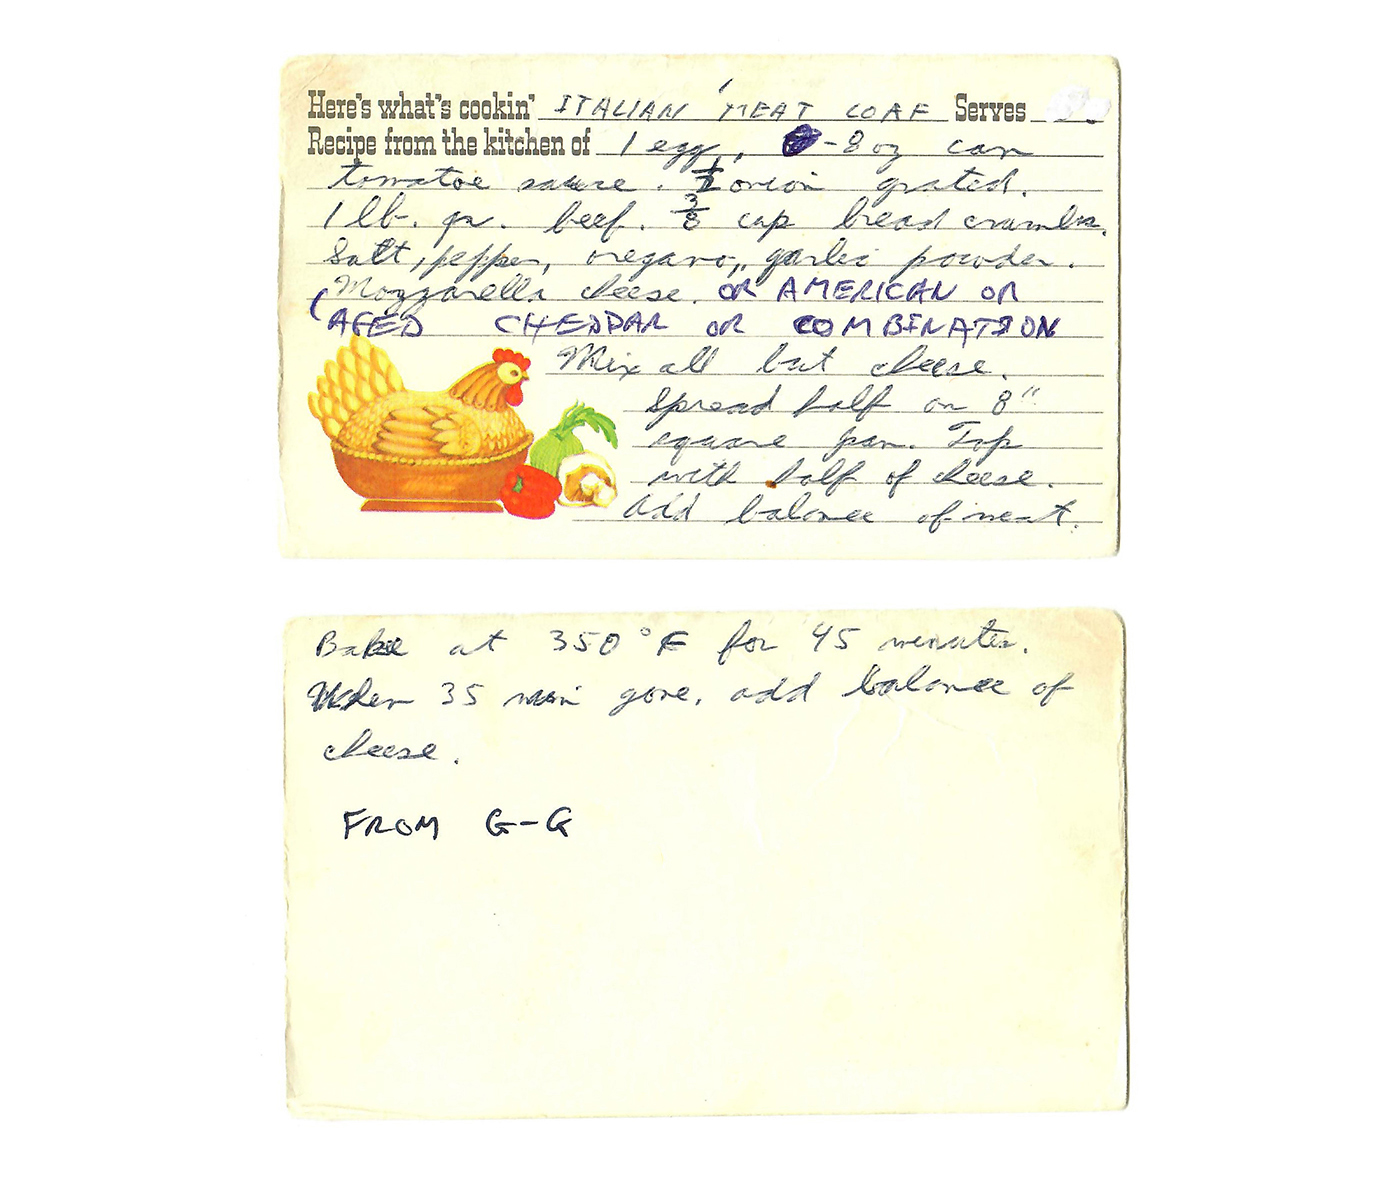 Here's what's cookin' ITALIAN MEAT LOAF Serves
Recipe from the kitchen of 1 egg, -8 oz can
tomatoe sauce. onion grated.
1 lb. gr. beef. 3/8 cup bread crumbs.
Salt, pepper, oregano, garlic powder.
Mozzarella cheese. OR AMERICAN OR
(AGED CHEDDAR OR COMBINATION
Mix all but cheese.
Spread half on 8"
square pan. Top
with half of cheese.
Add balance of meat.
Bake at 350°F for 45 minutes.
When 35 min gone, add balance of
cheese.
FROM G-G